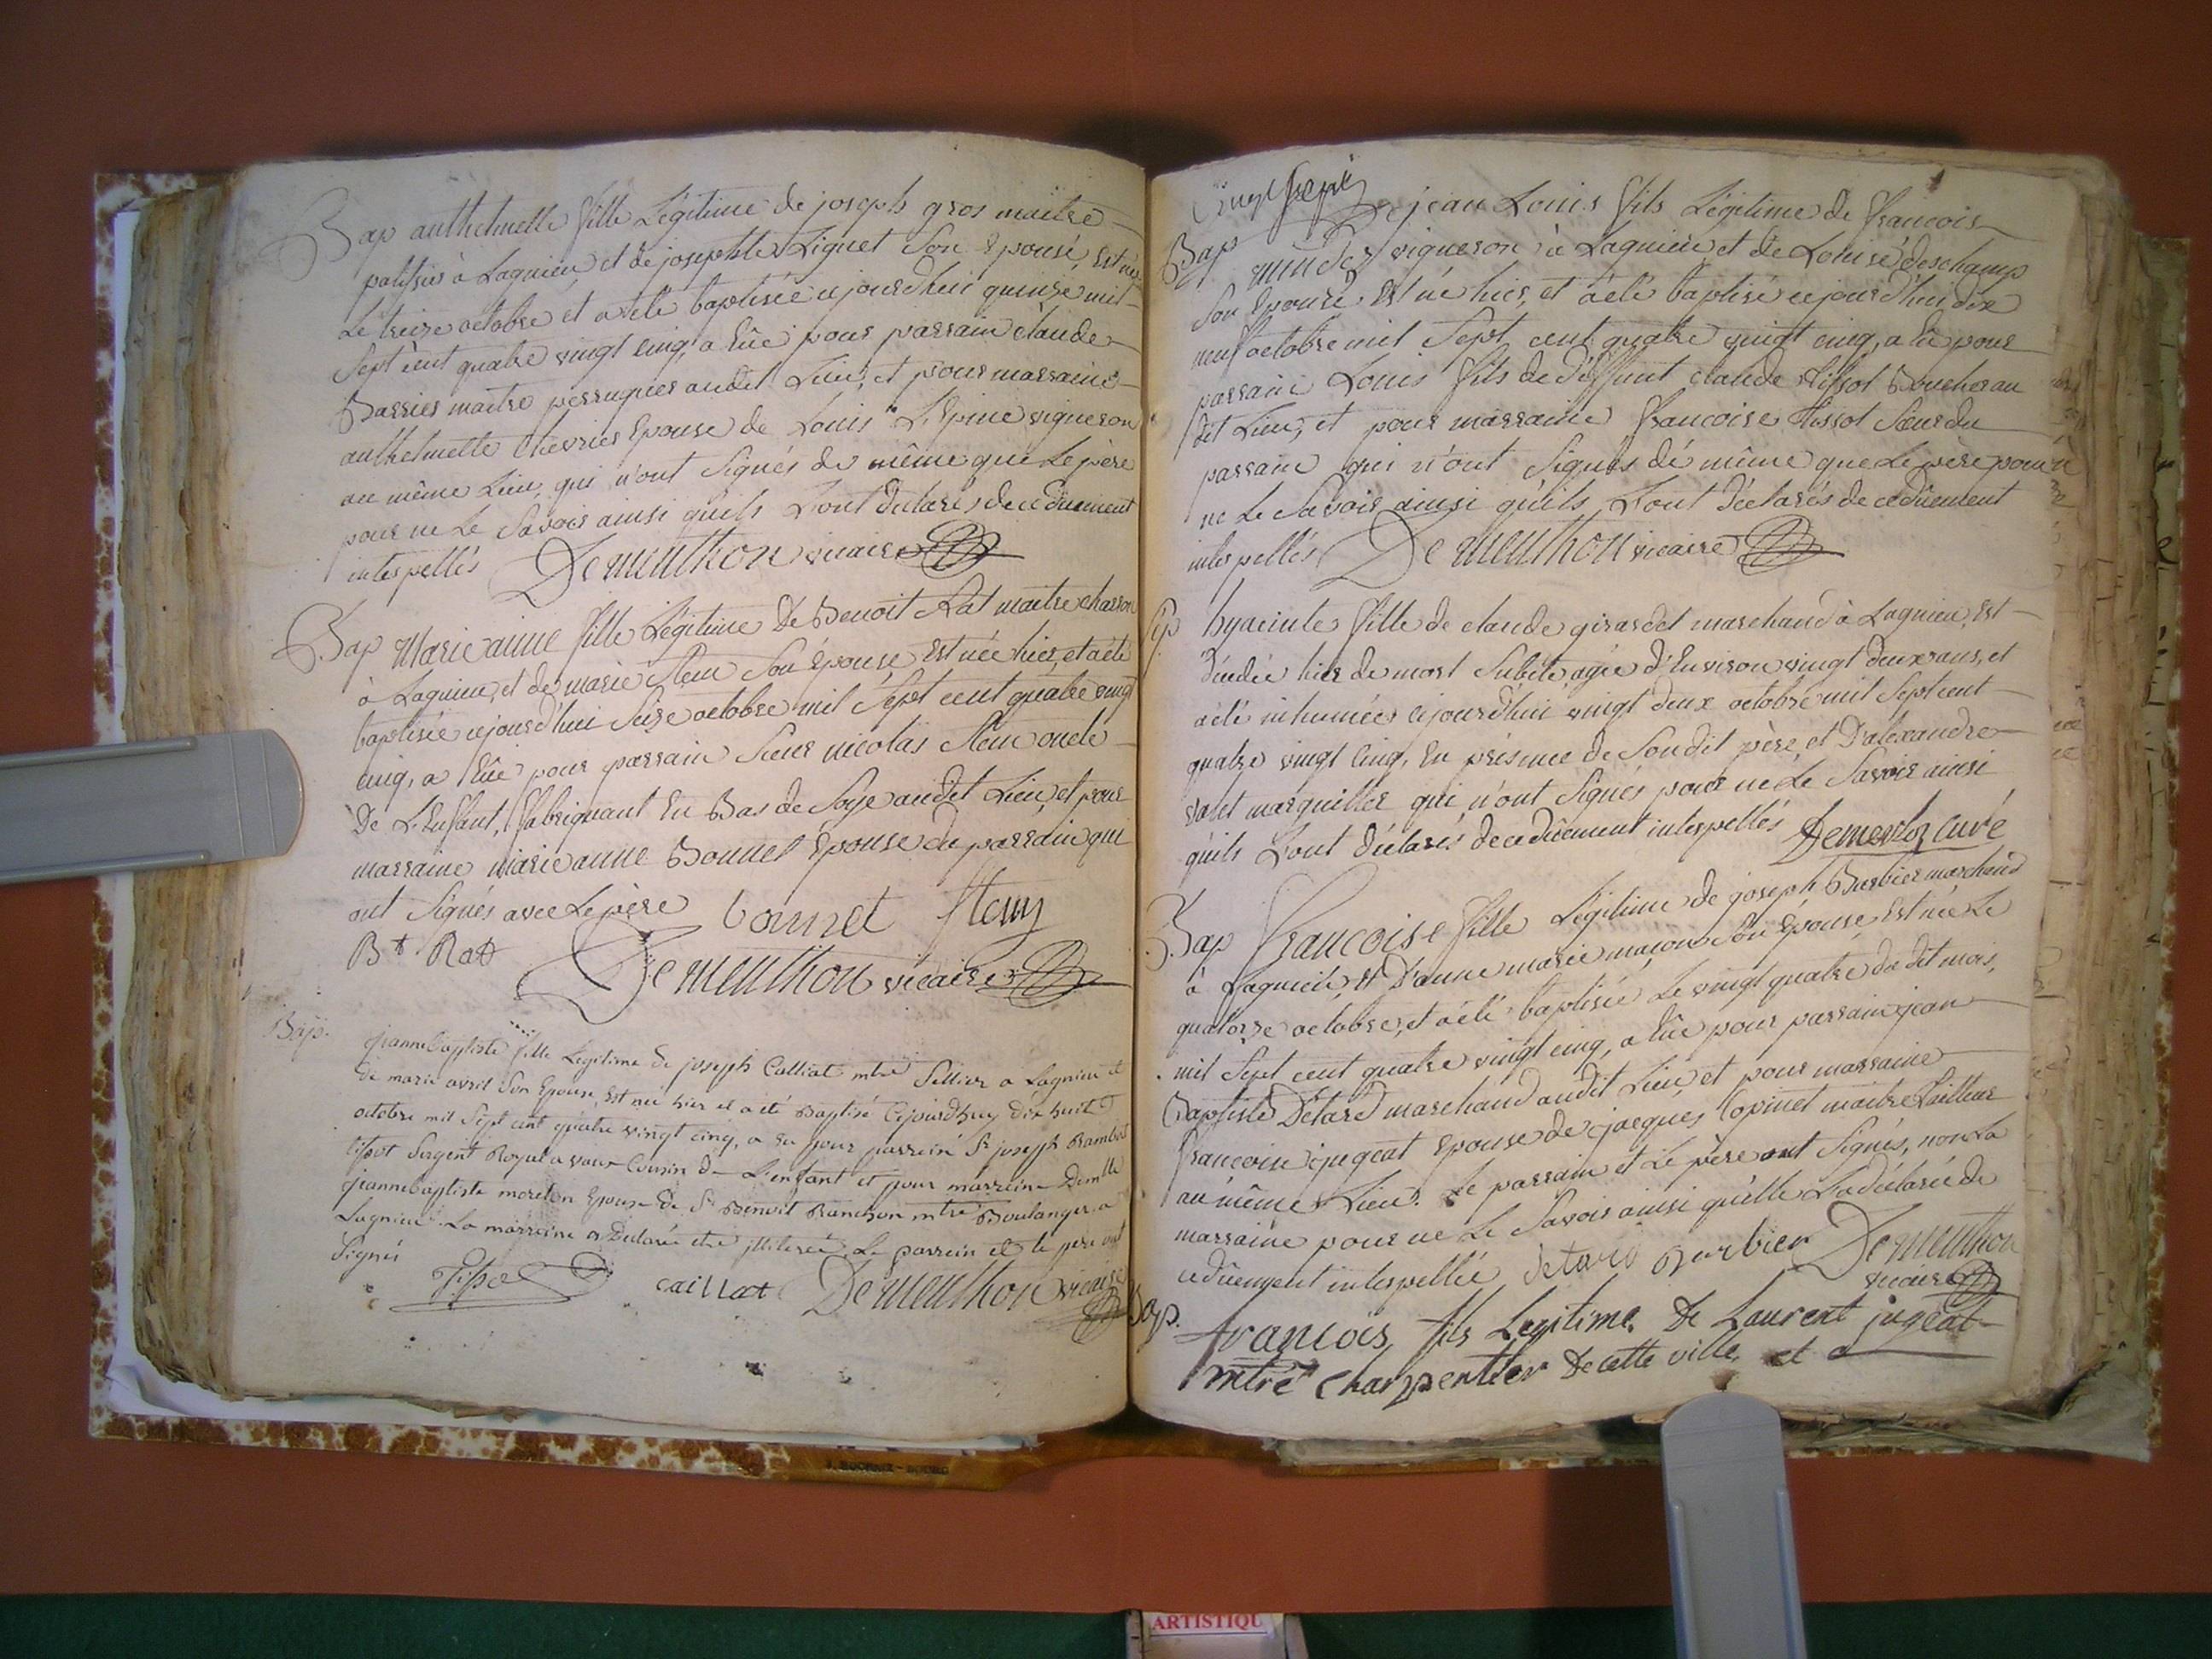 Bap anthelmette fille Légitime de joseph gros maitre
patissier à Lagnieu, et de josephte Liguet son Epouse, Est née
Le treize octobre et a été baptisée cejourdhui quinze mil
sept cent quatre vingt cinq, a Eûe pour parrain claude
Barrier maitre perruquier audit Lieu, et pour marraine
anthelmette chevrier Epouse de Louis L'Epine vigneron
au même Lieu, qui n'ont signés de même que Le père
pour ne Le savoir ainsi qu'ils L'ont déclarés de ce dûement
interpellés Dementhon vicaire
Bap Marie anne fille Légitime De Benoit Rat maitre charron
à Lagnieu, et de marie son Epouse Est née hier, et a été
baptisée cejourd'hui seize octobre mil sept cent quatre vingt
cinq, a Eûe pour parrain sieur nicolas oncle
De L'Enfant, fabriquant En Bas de soye audit Lieu, et pour
marraine marie anne Bonnet Epouse du parrain qui
ont signés avec Le père bonnet
Bt Rat
Dementhon vicaire
Bap. jeannebaptiste fille Legitime de joseph Calliat mtre Sellier a Lagnieu et
de marie avril son Epouse, Est nee hier et a été Baptisé Cejourdhuy dix huit
octobre mil sept cent quatre vingt cinq, a Eu pour parrein Sr joseph Rambert
tissot sergent Royal a vaux Cousin de L'enfant et pour marreine Demlle
jeannebaptiste moreton Epouse de Sr Benoit Ranchon mtre Boulanger a
Lagnieu. La marreine a Déclarée etre illiterée Le parrein et le pere ont
signés
Tissot caillat Dementhon vicaire
jean Louis fils Légitime de francois
Bap vigneron à Lagnieu et de Louise deschamp
son Epouse Est né hier, et a été baptisé cejourd'hui dix
neuf octobre mil sept cent quatre vingt cinq, a Eû pour
parrain Louis fils de déffunt claude tissot Boucher au
dit Lieu, et pour marraine francoise tissot sœur du
parrain qui n'ont signés dé même que Le père pour
ne Le savoir ainsi qu'ils L'ont déclarés de ce dûement
interpellés Dementhon vicaire
Sep hyacinte fille de claude girardet marchand à Lagnieu, Est
décédée hier de mort subite agée d'Environ vingt deux ans, et
a été inhumée cejourd'hui vingt deux octobre mil sept cent
quatre vingt cinq, En présence de son dit père, et D'alexandre
marguillier qui n'ont signés pour ne Le savoir ainsi
qu'ils L'ont déclarés de ce dûement interpellés curé
Bap francoise fille Légitime de joseph Barbier marchand
à Lagnieu, et D'anne marie maçon son Epouse Est née Le
quatorze octobre, et a été baptisée Le vingt quatre du dit mois,
mil sept cent quatre vingt cinq, a Eûe pour parrain jean
Baptiste Détard marchand audit Lieu, et pour marraine
francoise jugeat Epouse de jacques Copinet maitre tailleur
au même Lieu. Le parrain et Le père ont signés, non La
marraine pour ne Le savoir ainsi qu'elle L'a déclarée de
ce dûement interpellée détard Barbier Dementhon
vicaire
Bap. francois fils Legitime De Laurent jugeat
mtre charpentier De cette ville, et
ARTISTIQU